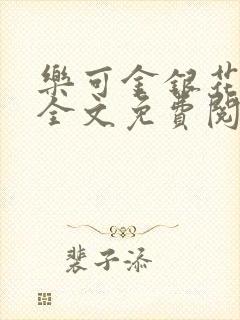 樂可金銀花
全文免費閱
裴子添